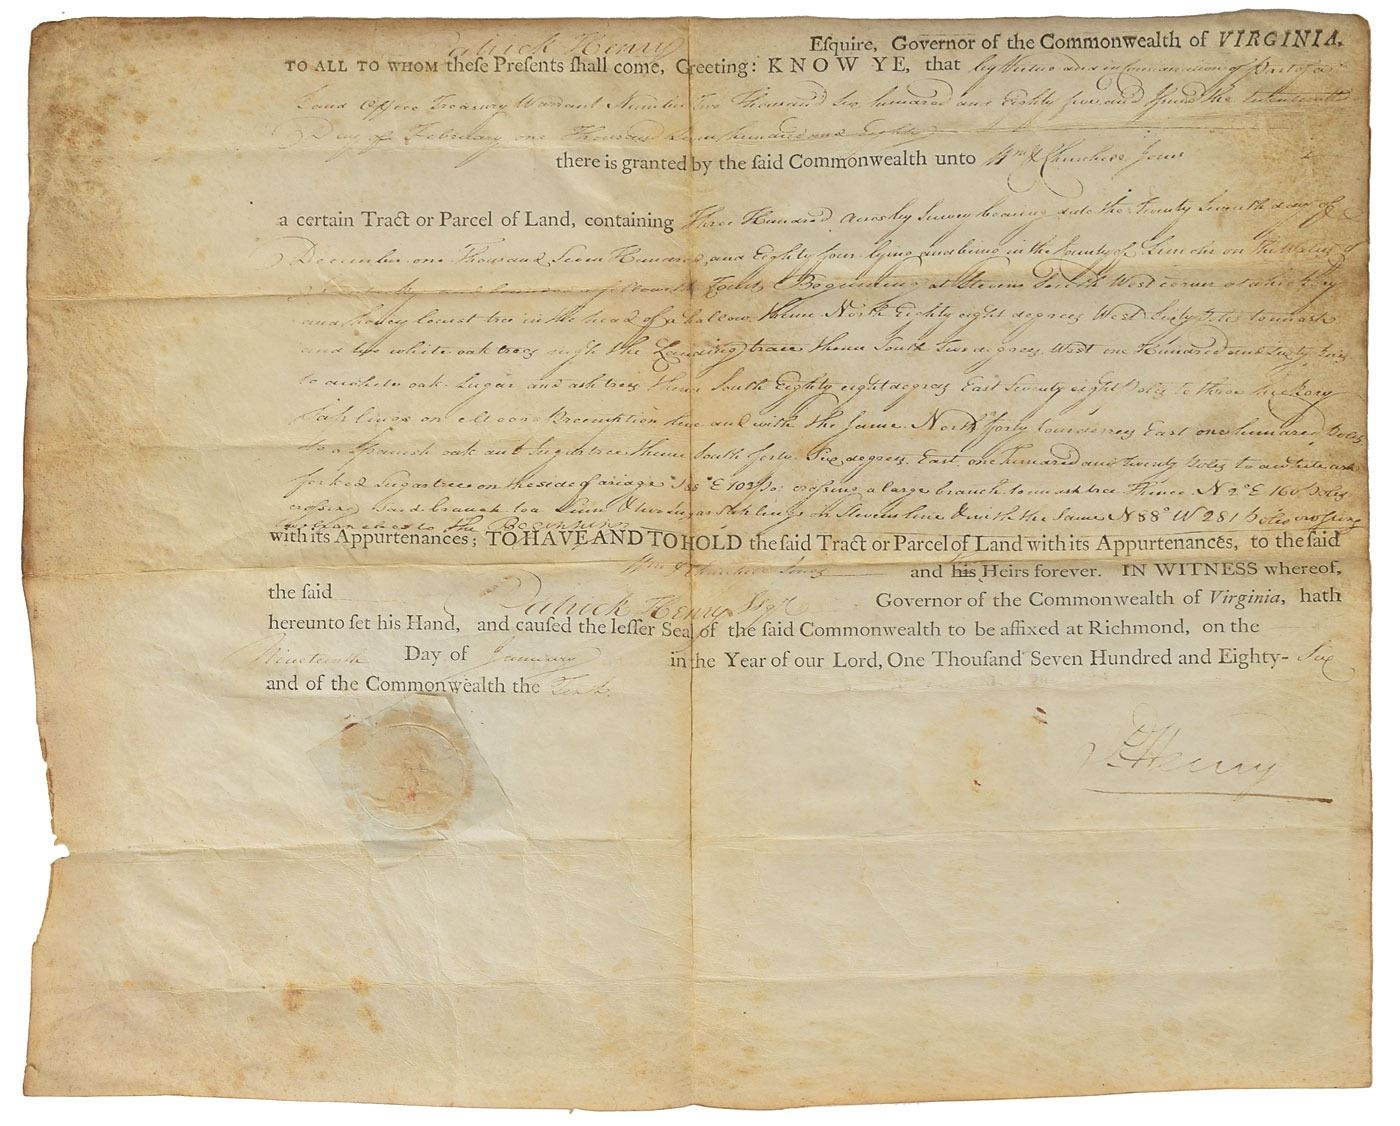 Patrick Henry Esquire, Governor of the Commonwealth of VIRGINIA,
TO ALL TO WHOM theſe Preſents ſhall come, Greeting: KNOW YE, that by Virtue and in Consideration of Part of a
Land Office Treasury Warrant Number Two Thousand Six hundred and Eighty five and Issued the
Day of February one Thousand Seven hundred and Eighty
there is granted by the ſaid Commonwealth unto Wm & Churchill Jones
a certain Tract or Parcel of Land, containing Three Hundred Acres by Survey bearing date the Twenty Seventh day of
December one Thousand Seven Hundred and Eighty four lying and being in the County of Lincoln on the Waters of
and bounded as followeth Towit, Beginning at Stevens South West corner at a hickory
and honey locust tree in the head of a hollow Thence North Eighty eight degrees West Sixty Poles to an ash
and two white oak trees nigh the Landing trace thence South Two degrees West one Hundred and Sixty Poles
to a white oak Sugar and ash trees thence South Eighty eight degrees East Seventy eight Poles to three hickory
Saplings on Moores Preemption line and with the same North forty four degrees East one hundred Poles
to a Spanish oak and Sugar tree thence South forty Six degrees East one hundred and twenty Poles to a white ash
forked Sugartree on the side of a ridge S88°E 102 po: crossing a large branch to an ash tree Thence N2°E 160 Poles
crossing said branch to a Linn & two Sugar Saplings on Stevens line & with the Same N88°W 281 Poles crossing
two branches to the Beginning
with its Appurtenances; TO HAVE AND TO HOLD the ſaid Tract or Parcel of Land with its Appurtenances, to the ſaid
Wm & Churchill Jones and his Heirs forever. IN WITNESS whereof,
the ſaid Patrick Henry Esqr Governor of the Commonwealth of Virginia, hath
hereunto ſet his Hand, and cauſed the leſſer Seal of the ſaid Commonwealth to be affixed at Richmond, on the
Nineteenth Day of January in the Year of our Lord, One Thouſand Seven Hundred and Eighty- Six
and of the Commonwealth the Tenth.
P. Henry